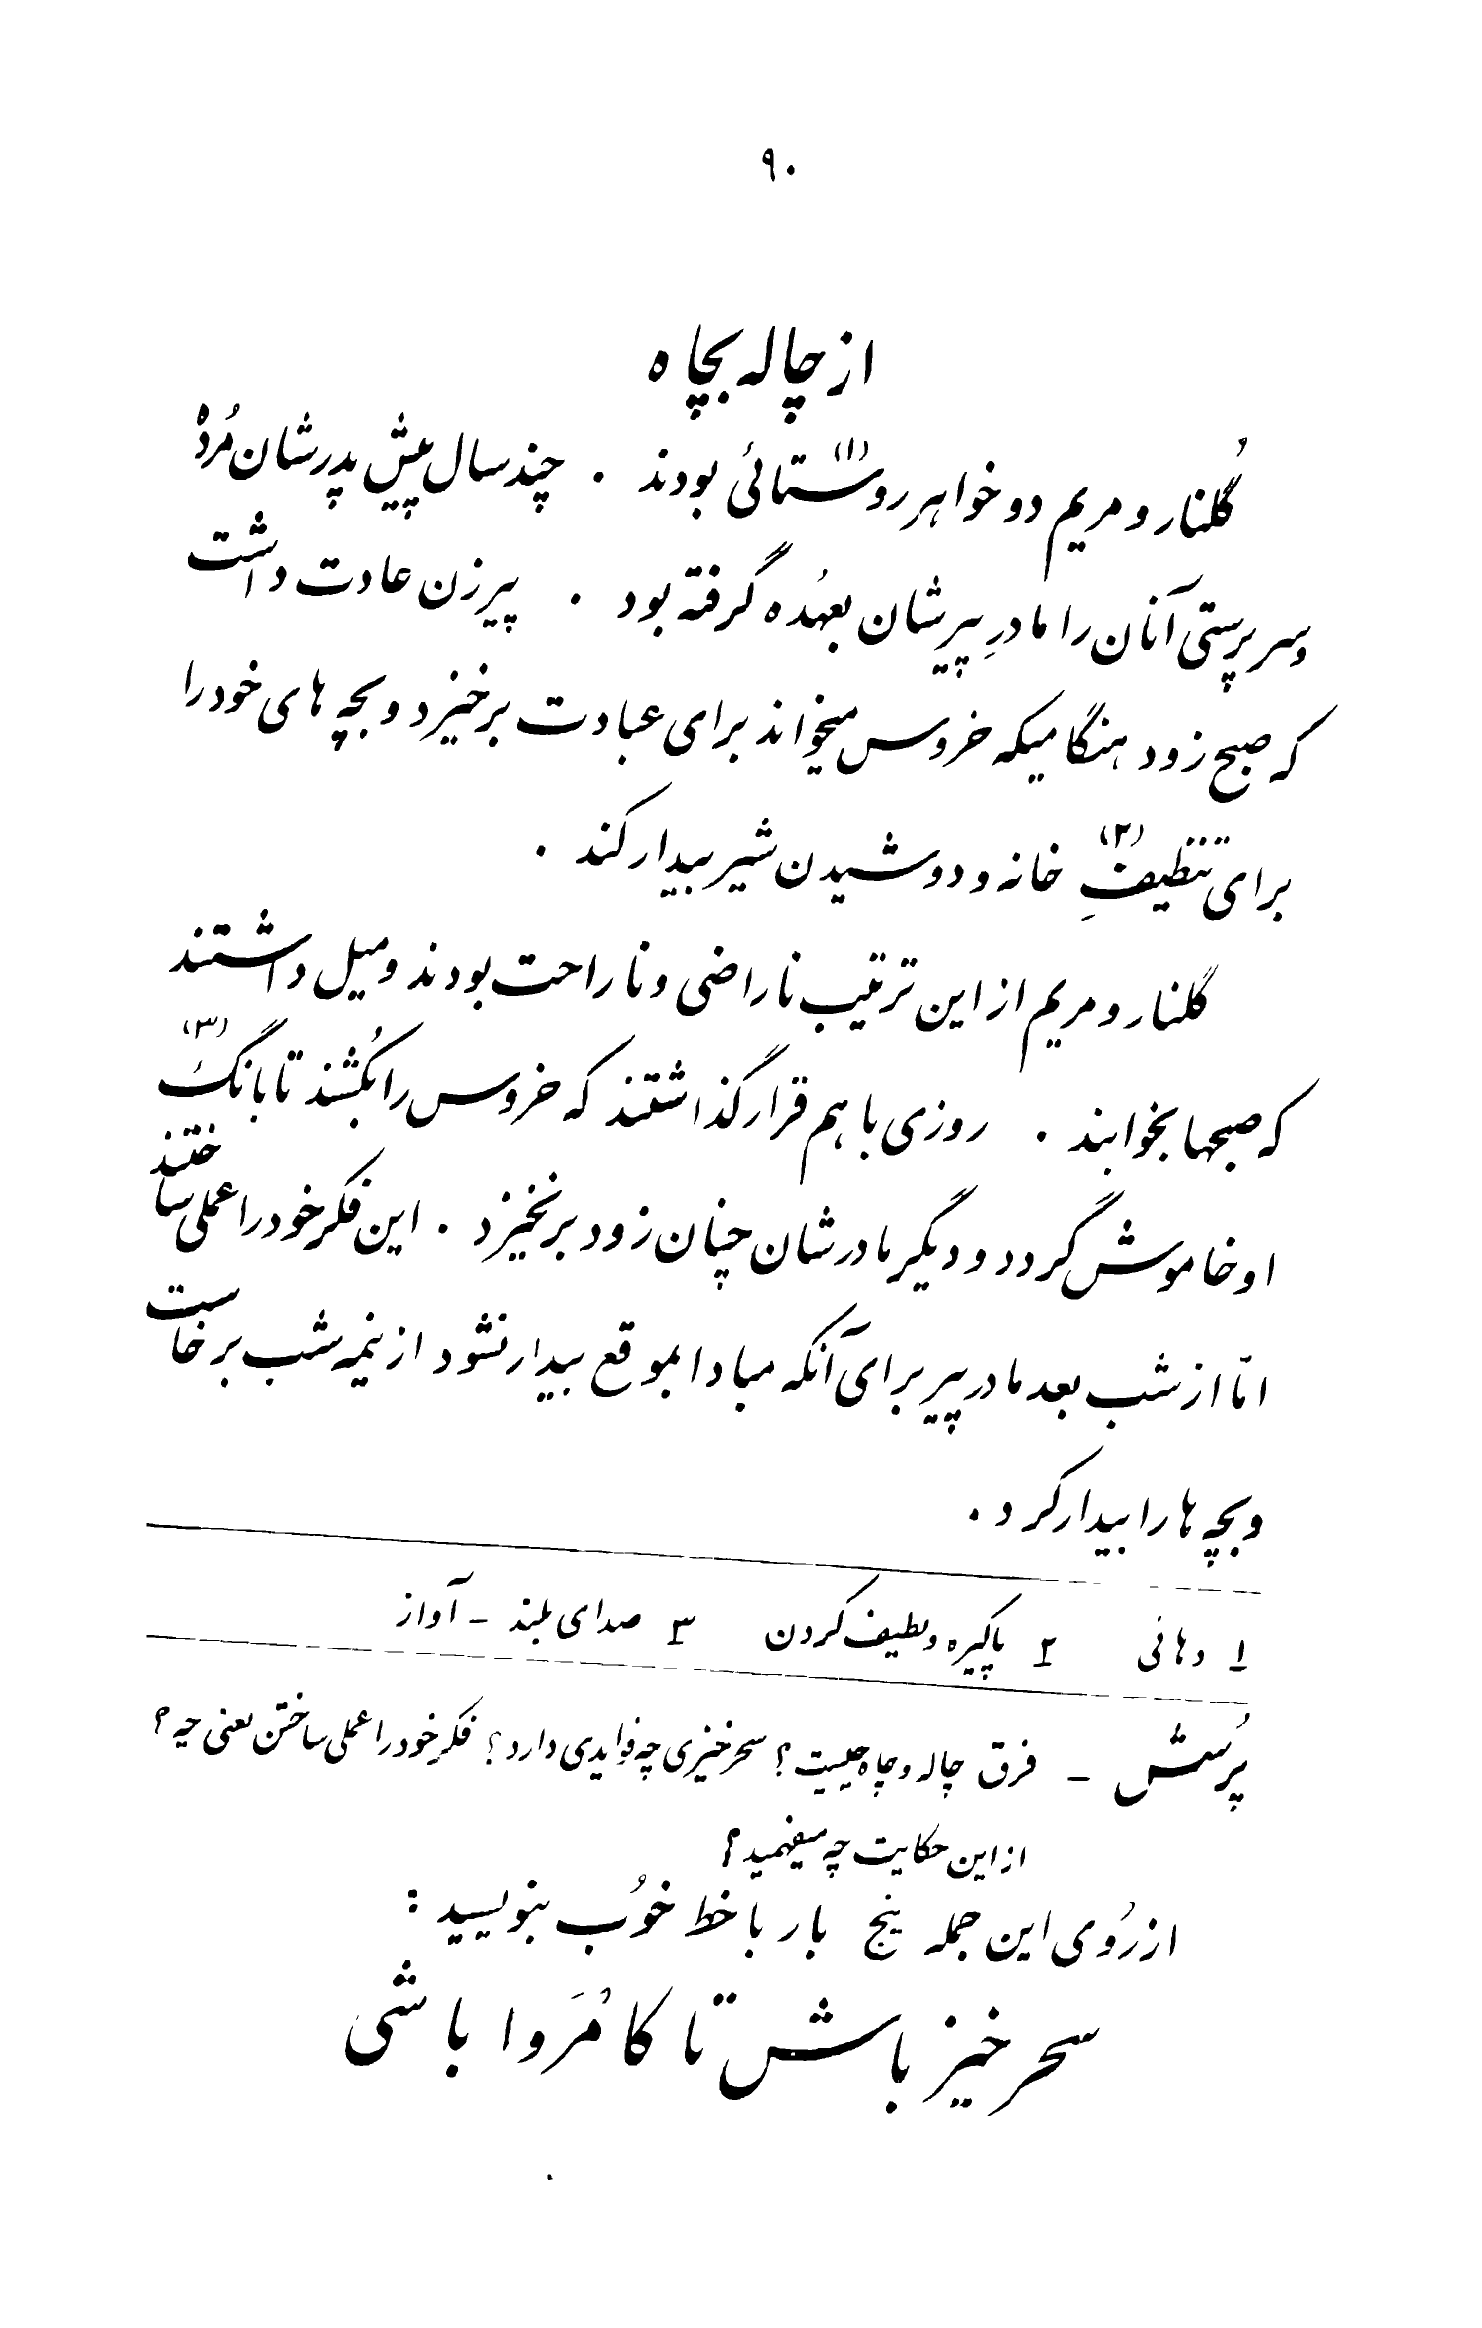 ۹۰
از چاله بچاه
گُلنار و مریم دو خواهر روستائی (۱) بودند . چند سال پیش پدرشان مُرده
و سرپرستی آنان را مادرِ پیرشان بعُهده گرفته بود . پیرزن عادت داشت
که صبح زود هنگامیکه خروس میخواند برای عبادت برخیزد و بچه های خود را
برای تنظیفِ (۲) خانه و دوشیدن شیر بیدار کند .
گلنار و مریم از این ترتیب ناراضی و ناراحت بودند و میل داشتند
که صبحها بخوابند . روزی با هم قرار گذاشتند که خروس را بکُشند تا بانگ (۳)
او خاموش گردد و دیگر مادرشان چنان زود برنخیزد . این فکر خود را عملی ساختند
امّا از شب بعد مادر پیر برای آنکه مبادا بموقع بیدار نشود از نیمه شب برخاست
و بچه ها را بیدار کرد .
۱ دهاتی ۲ پاکیزه و لطیف کردن ۳ صدای بلند - آواز
پُرسش - فرق چاله و چاه چیست ؟ سحرخیزی چه فوایدی دارد ؟ فکرِ خود را عملی ساختن یعنی چه ؟
از این حکایت چه میفهمید ؟
از رُوی این جمله پنج بار با خط خوُب بنویسید :
سحر خیز باش تا کامُرَوا باشی